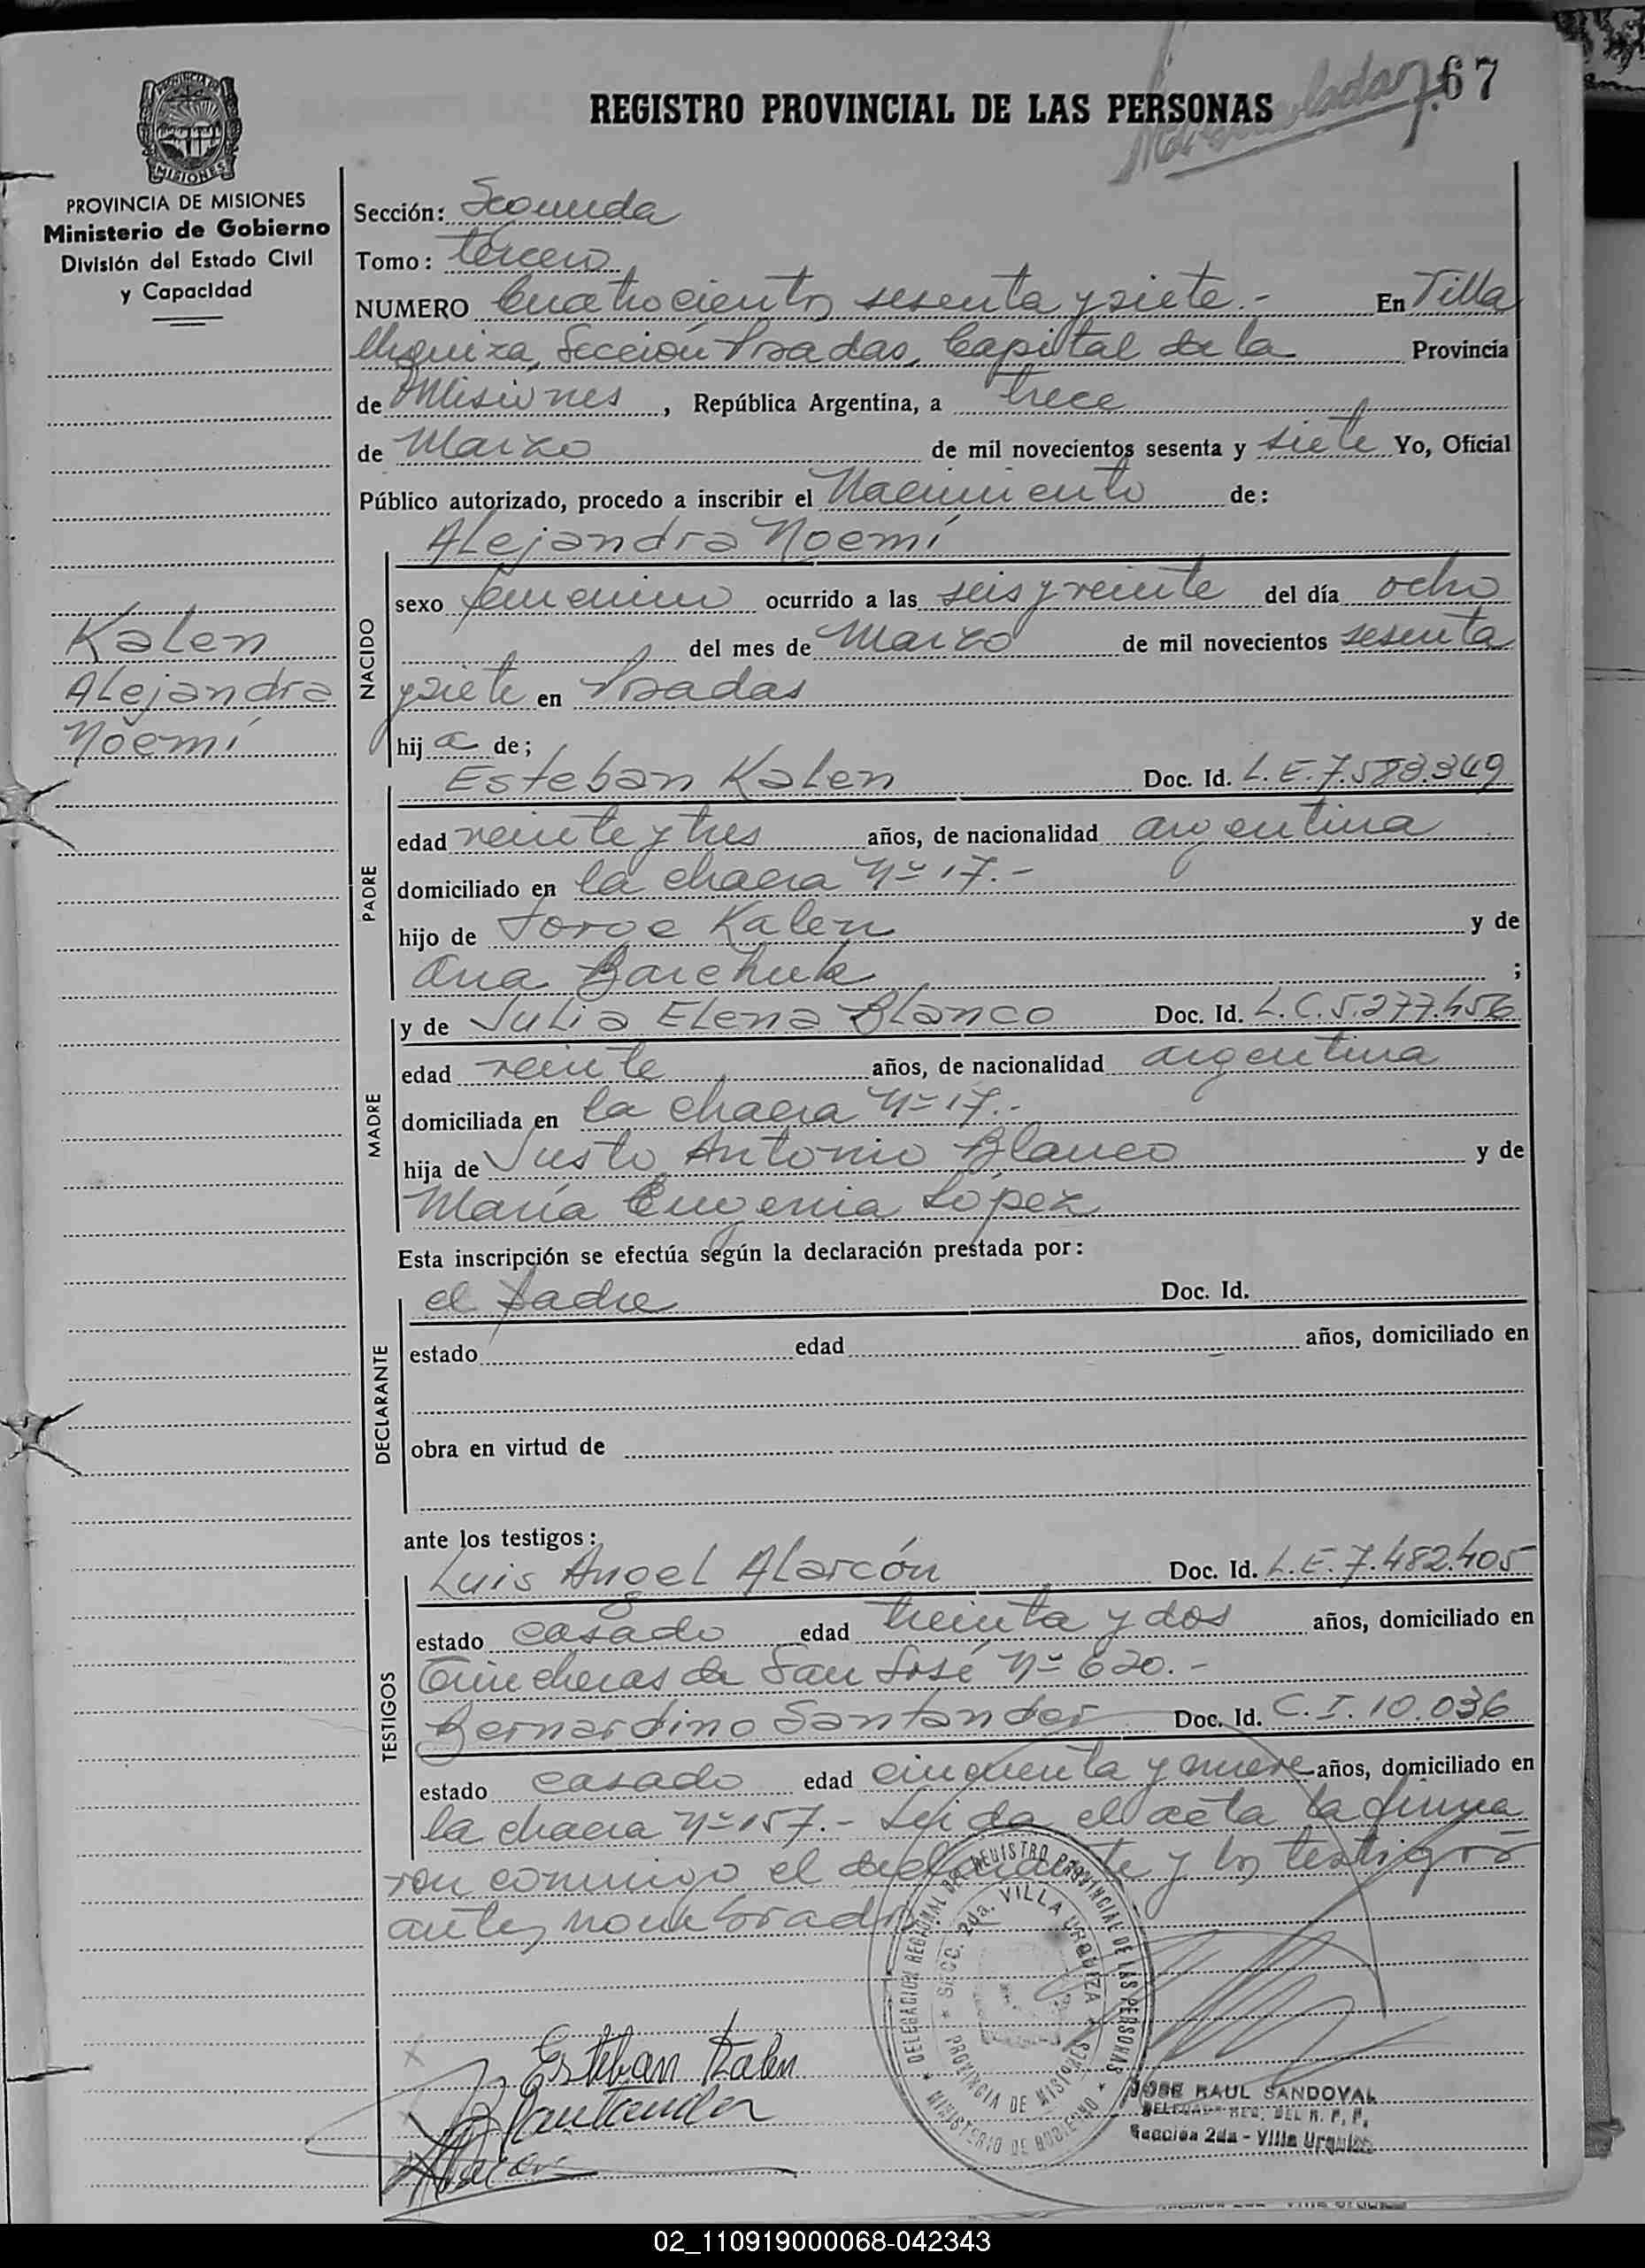 67
REGISTRO PROVINCIAL DE LAS PERSONAS
PROVINCIA DE MISIONES
MISIONES
PROVINCIA DE MISIONES
Ministerio de Gobierno
División del Estado Civil
y Capacidad
Kalen
Alejandra
Noemí
Sección: Segunda
Tomo: tercero
NUMERO Cuatrocientos sesenta y siete.- En Villa
Urquiza, Sección Posadas, Capital de la Provincia
de Misiones, República Argentina, a trece
de Marzo de mil novecientos sesenta y siete Yo, Oficial
Público autorizado, procedo a inscribir el Nacimiento de:
Alejandra Noemí
NACIDO
sexo femenino ocurrido a las seis y veinte del día ocho
del mes de Marzo de mil novecientos sesenta
y siete en Posadas
hija de;
Esteban Kalen Doc. Id. L.E. 7.588.349
PADRE
edad veinte y tres años, de nacionalidad argentina
domiciliado en la chacra Nº 17.-
hijo de Jorge Kalen y de
Ana Barchuk ;
y de Julia Elena Blanco Doc. Id. L.C. 5.277.456
MADRE
edad veinte años, de nacionalidad argentina
domiciliada en la chacra Nº 17.-
hija de Justo Antonio Blanco y de
María Eugenia López
Esta inscripción se efectúa según la declaración prestada por:
el padre Doc. Id.
DECLARANTE
estado edad años, domiciliado en
obra en virtud de
ante los testigos:
Luis Angel Alarcón Doc. Id. L.E. 7.482.405
TESTIGOS
estado casado edad treinta y dos años, domiciliado en
Trincheras de San José Nº 620.-
Bernardino Santander Doc. Id. C.I. 10.036
estado casado edad cincuenta y nueve años, domiciliado en
la chacra Nº 157.- Leída el acta la firma
ron conmigo el declarante y los testigos
antes nombrados
DELEGACION REGIONAL DEL REGISTRO PROVINCIAL DE LAS PERSONAS
SECC. 2da. VILLA URQUIZA
PROVINCIA DE MISIONES
MINISTERIO DE GOBIERNO
Esteban Kalen
BSantander
Alarcón
JOSE RAUL SANDOVAL
DELEGADO REG. DEL R. P. P.
Sección 2da - Villa Urquiza
02_110919000068-042343